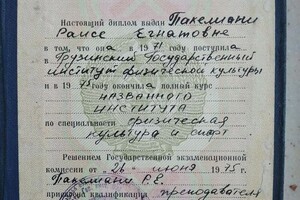 Настоящий диплом выдан Пакелиани
Раисе Егнатовне
в том, что она в 1971 году поступила
в Грузинский Государственный
институт физической культуры
и в 1975 году окончила полный курс
названного
института
по специальности физическая
культура и спорт
Решением Государственной экзаменационной
комиссии от "26" июня 1975 г.
Пакелиани Р.Е.
присвоена квалификация преподавателя